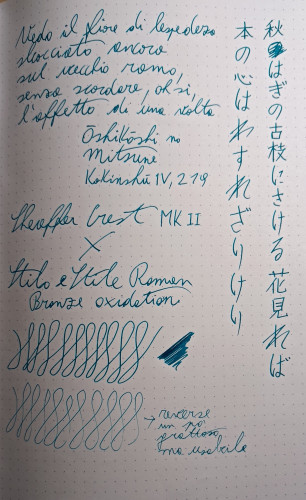 Vedo il fiore di lespedeza
sbocciato ancora
sul vecchio ramo,
senza scordare, oh sì,
l'affetto di una volta
Ōshikōshi no
Mitsune
Kokinshū IV, 219
秋はぎの古枝にさける花見れば
本の心はわすれざりけり
Sheaffer Crest MK II
×
Stilo e Stile Roman
Bronze oxidation
→ reverse
un po'
grattoso
ma usabile